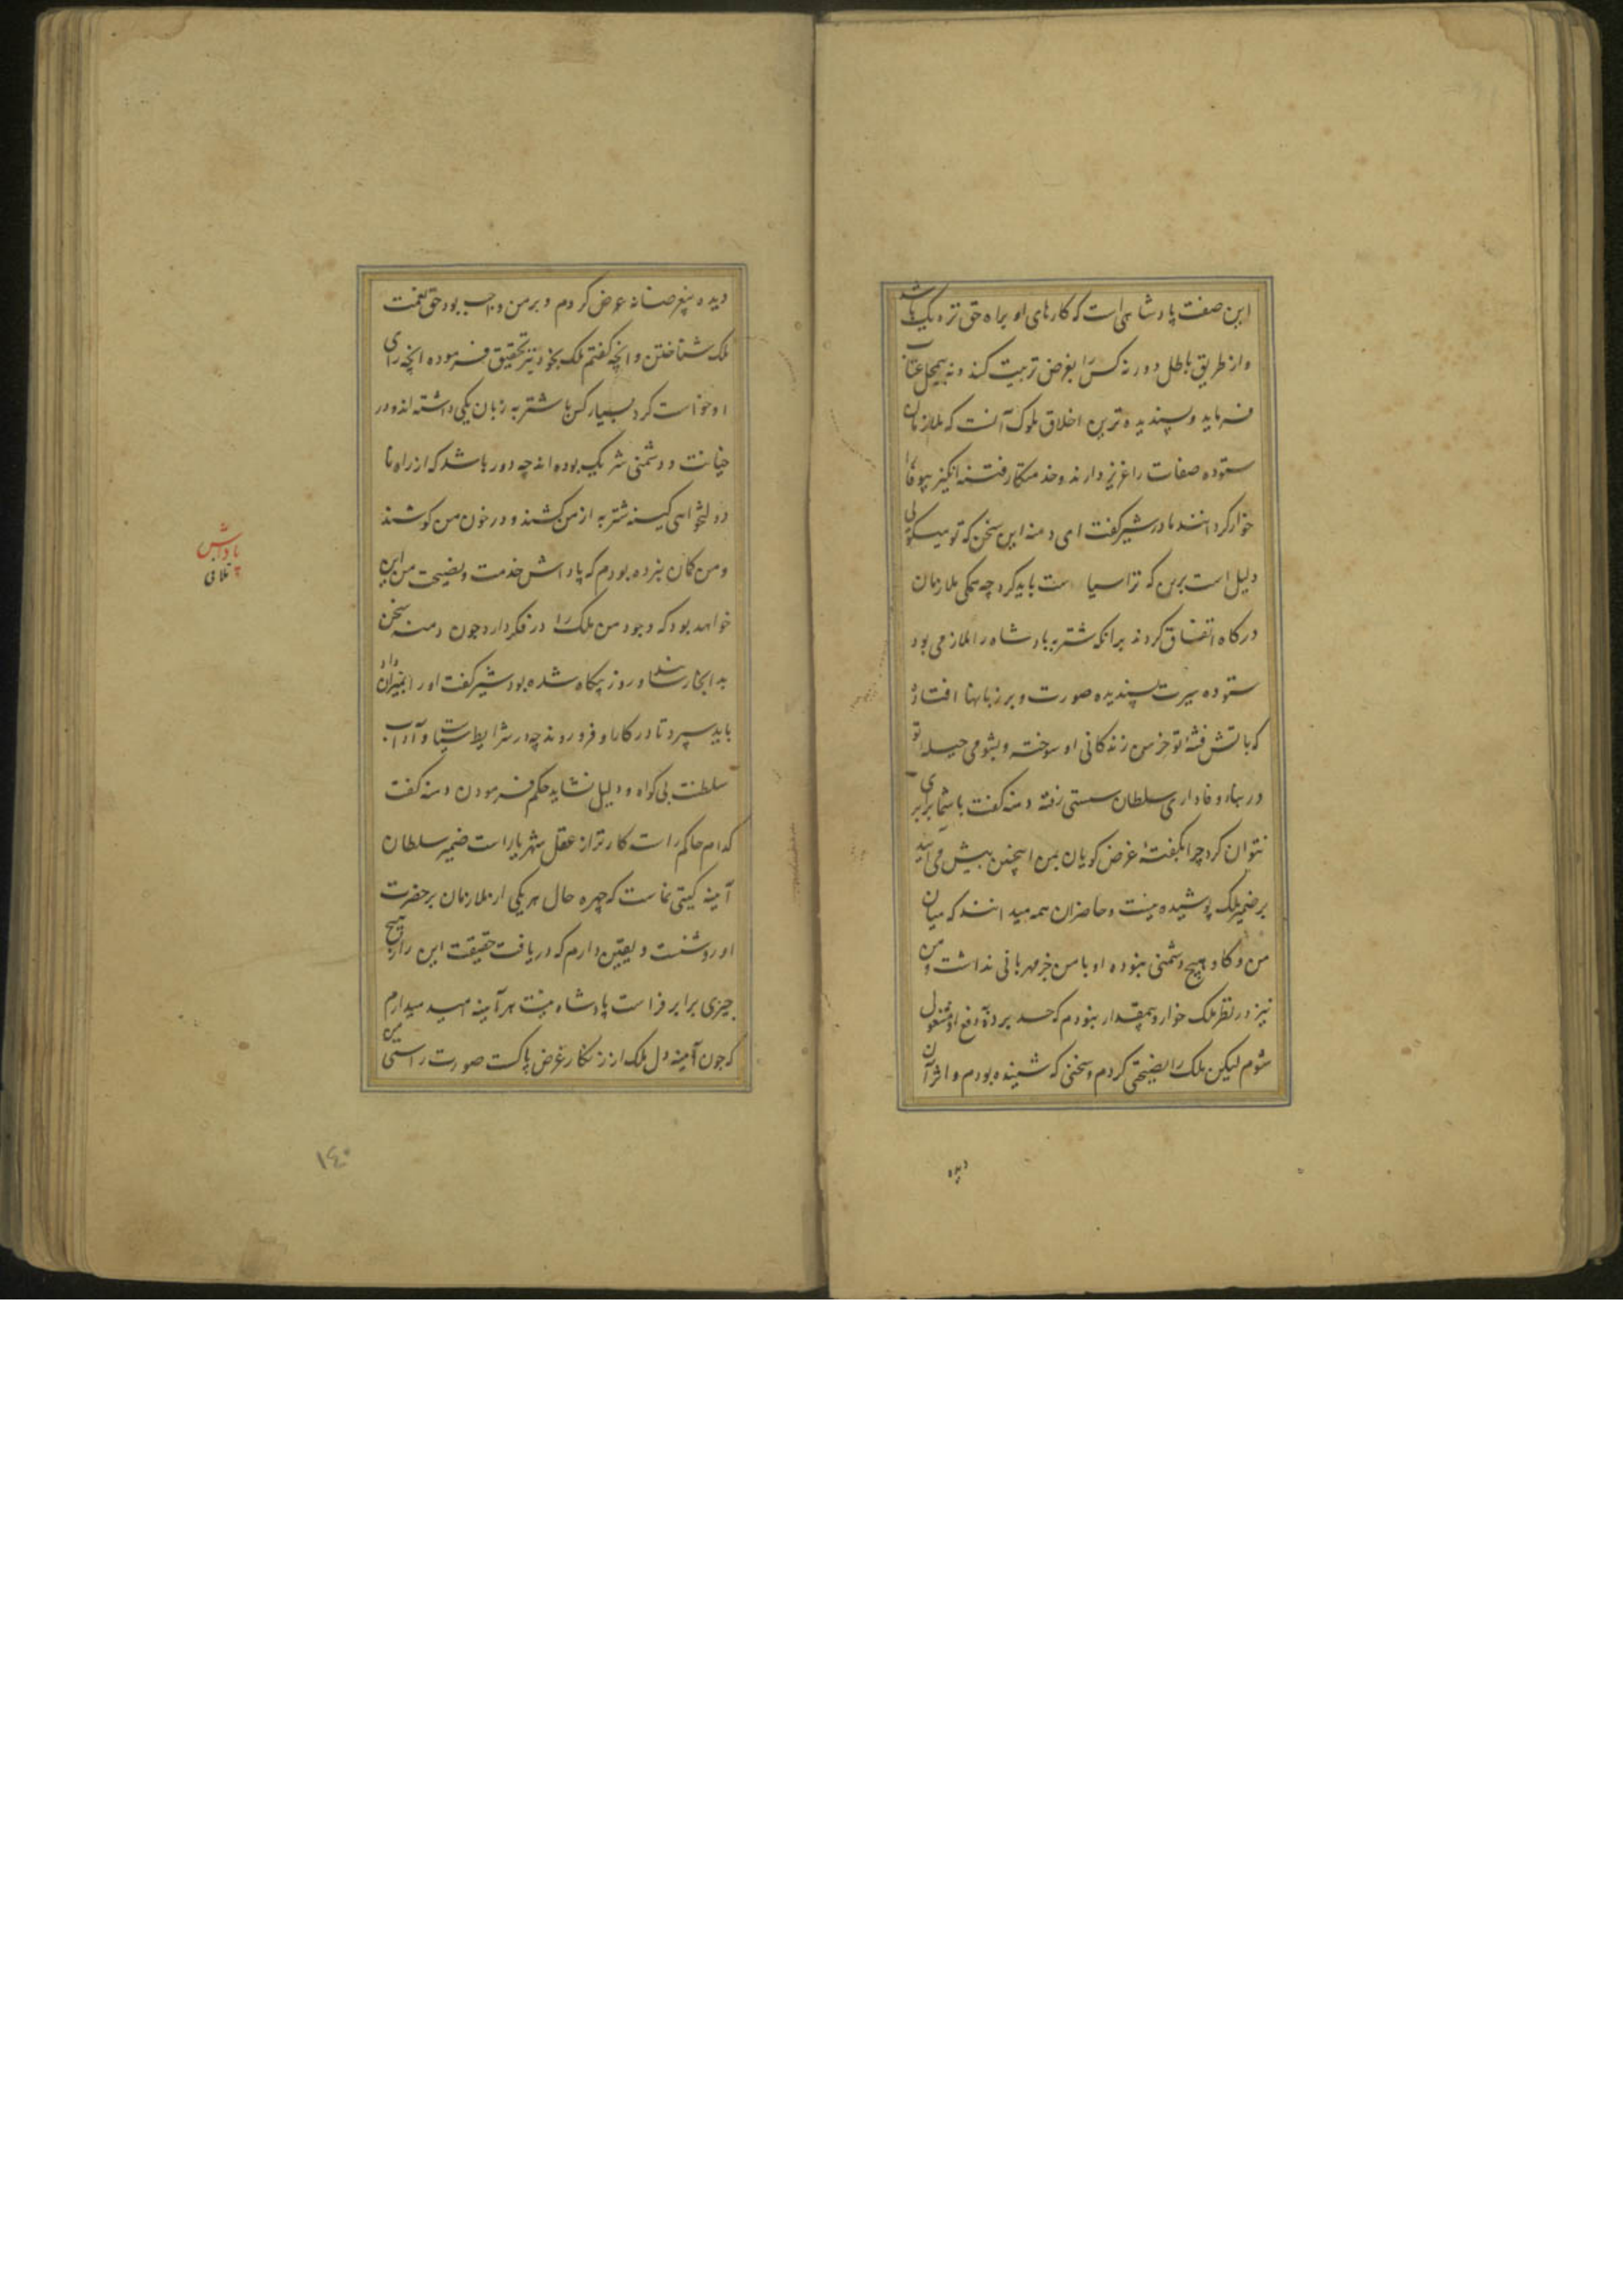 این صفت پادشاهی است که کارهای او براه حق نزدیک باشد
و از طریق باطل دور نه کس را بغرض تربیت کند و نه بیمحل عتاب
فرماید و پسندیده ترین اخلاق ملوک آنست که ملازمان
ستوده صفات را عزیز دارند و خدمتکار فتنه انگیز بیوفا را
خوار گردانند مادر شیر گفت ای دمنه این سخن که تو میگویی
دلیل است برین که ترا سیاست باید کرد چه همگی ملازمان
درگاه اتفاق کردند برانکه شتربه پادشاه را ملازمی بود
ستوده سیرت پسندیده صورت و بر زبانها افتاده
که باتش فتنهٔ تو خرمن زندگانی او سوخته و بشومی حیلهٔ تو
در بناء وفاداری سلطان سستی رفته دمنه گفت با شما برابری
نتوان کرد چرا بگفتهٔ غرض گویان بمن اینچنین پیش می آیند
بر ضمیر ملک پوشیده نیست و حاضران همه میدانند که میان
من و گاو هیچ دشمنی نبوده او با من جز مهربانی نداشت و من
نیز در نظر ملک خوار و بیمقدار نبودم که حسد برده و دفع او مشغول
شوم لیکن ملک را نصیحتی کردم و سخنی که شنیده بودم و اثر آن
دیده
دیده بیغرضانه عرض کردم و بر من واجب بود حق نعمت
ملک شناختن و انچه گفتم ملک بخود نیز تحقیق فرموده انچه رای
او خواست کرد بسیار کس با شتربه زبان یکی داشته اند و در
خیانت و دشمنی شریک بوده اند چه دور باشد که از راه نا
دولتخواهی کینه شتربه از من کشند و در خون من کوشند
و من گمان نبرده بودم که پاداش خدمت و نصیحت من این
خواهد بود که وجود من ملک را در فکر دارد چون دمنه سخن
بدانجا رسانید و روز بیگاه شده بود شیر گفت او را بمیرداد
باید سپرد تا در کار او فرو روند چه در شرایط سیاست و آداب
سلطنت بی گواه و دلیل نشاید حکم فرمودن دمنه گفت
کدام حاکم راست کارتر از عقل شهریار است ضمیر سلطان
آینه گیتی نماست که چهره حال هر یکی از ملازمان بر حضرت
او روشنست و یقین دارم که دریافت حقیقت این راز هیچ
چیزی برابر فراست پادشاه نیست هر آینه امید میدارم
که چون آینه دل ملک از زنگار غرض پاکست صورت راستی من
پاداش
تلافی
۱٤۰